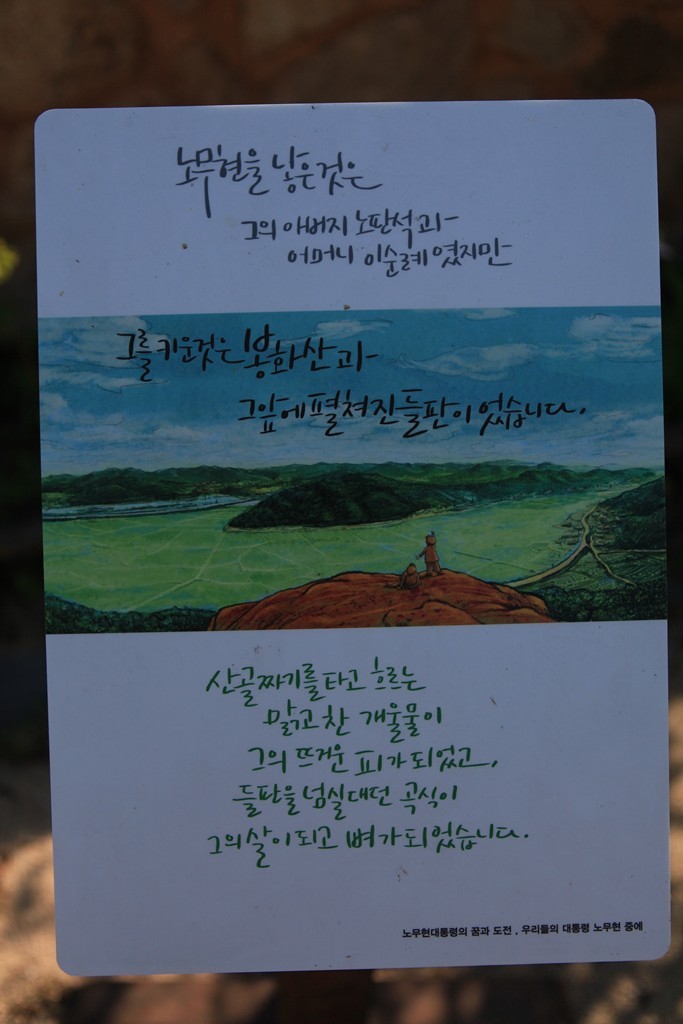 노무현을 낳은것은
그의 아버지 노판석과
어머니 이순례였지만
그를 키운것은 봉화산과
그앞에 펼쳐진 들판이었습니다.
산골짜기를 타고 흐르는
맑고 찬 개울물이
그의 뜨거운 피가 되었고,
들판을 넘실대던 곡식이
그의 살이 되고 뼈가 되었습니다.
노무현대통령의 꿈과 도전 , 우리들의 대통령 노무현 중에